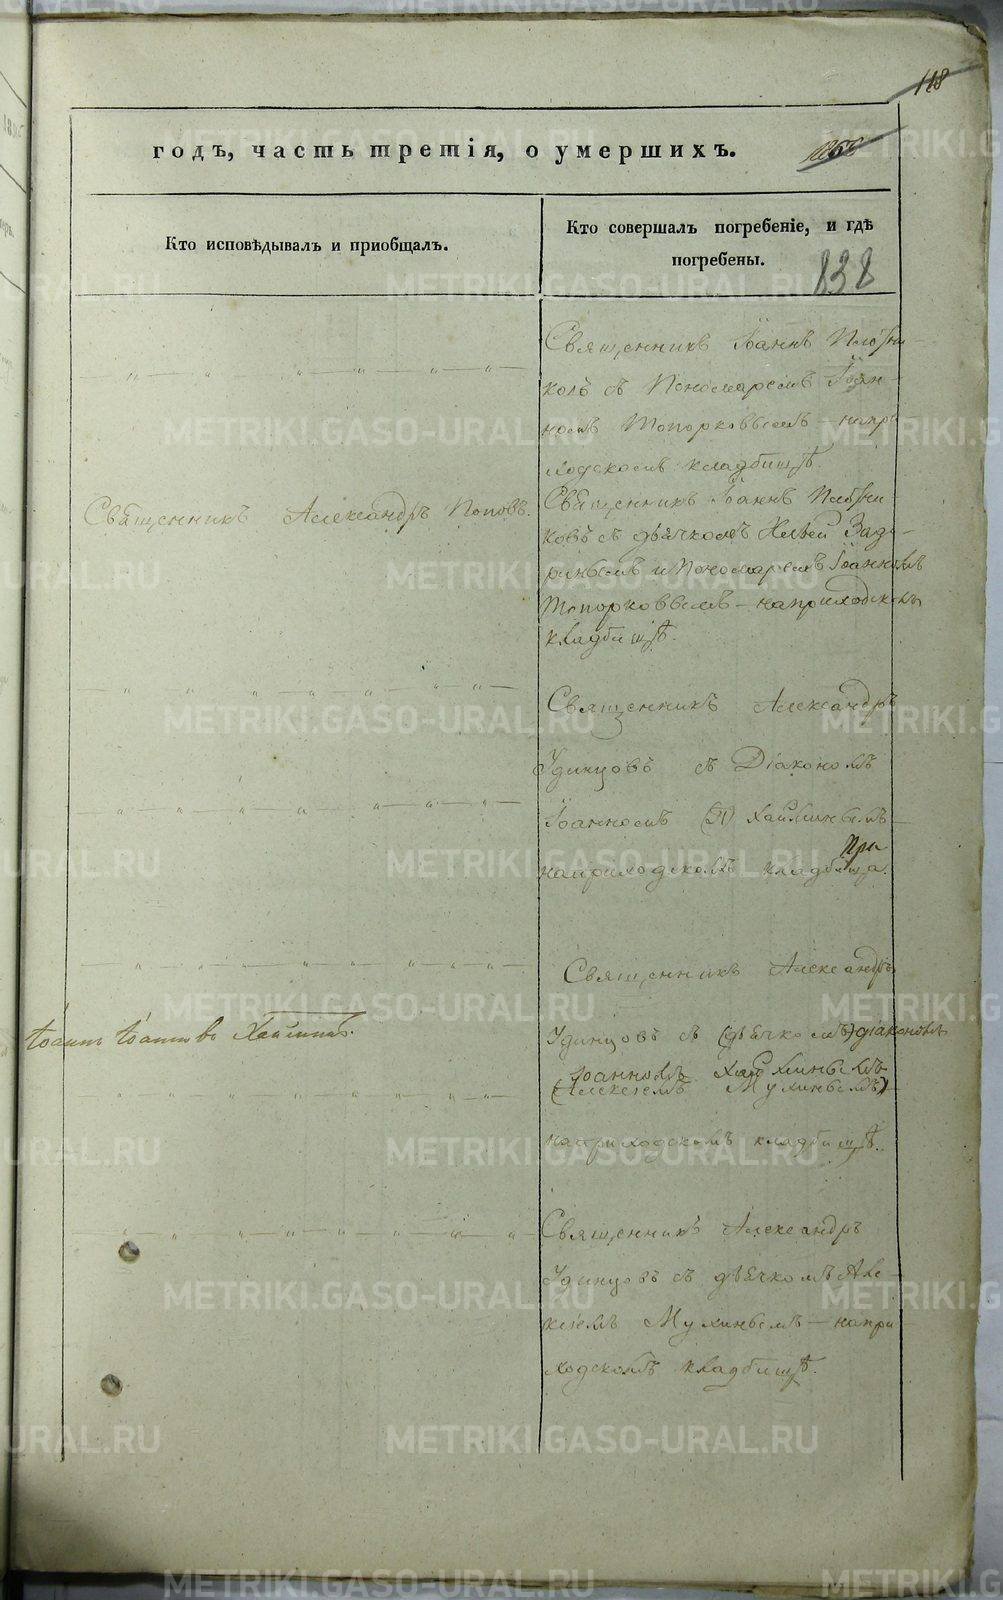 118
годъ, часть третія, о умершихъ.
Кто исповѣдывалъ и приобщалъ.
Кто совершалъ погребеніе, и гдѣ
погребены.
838
Священникъ Іоаннъ Плотни-
ковъ съ Пономаремъ Іоан-
номъ Топорковымъ - на при
ходскомъ кладбищѣ.
Священникъ Александръ Поповъ.
Священникъ Іоаннъ Плотни-
ковъ съ дьячкомъ
и Пономаремъ Іоанномъ
Топорковымъ - на приходскомъ
кладбищѣ.
Священникъ Александръ
Удинцовъ съ Діакономъ
Іоанномъ Хайминымъ -
При
на приходскомъ кладбища.
Священникъ Александръ
Іоаннъ Іоанновъ Хайминъ.
Удинцовъ съ (дьячкомъ) діакономъ
Іоанномъ Хайминымъ
(Алексіемъ Мухинымъ) -
на приходскомъ кладбищѣ.
Священникъ Александръ
Удинцовъ съ дьячкомъ Але-
ксіемъ Мухинымъ - на при-
ходскомъ кладбищѣ.
METRIKI.GASO-URAL.RU